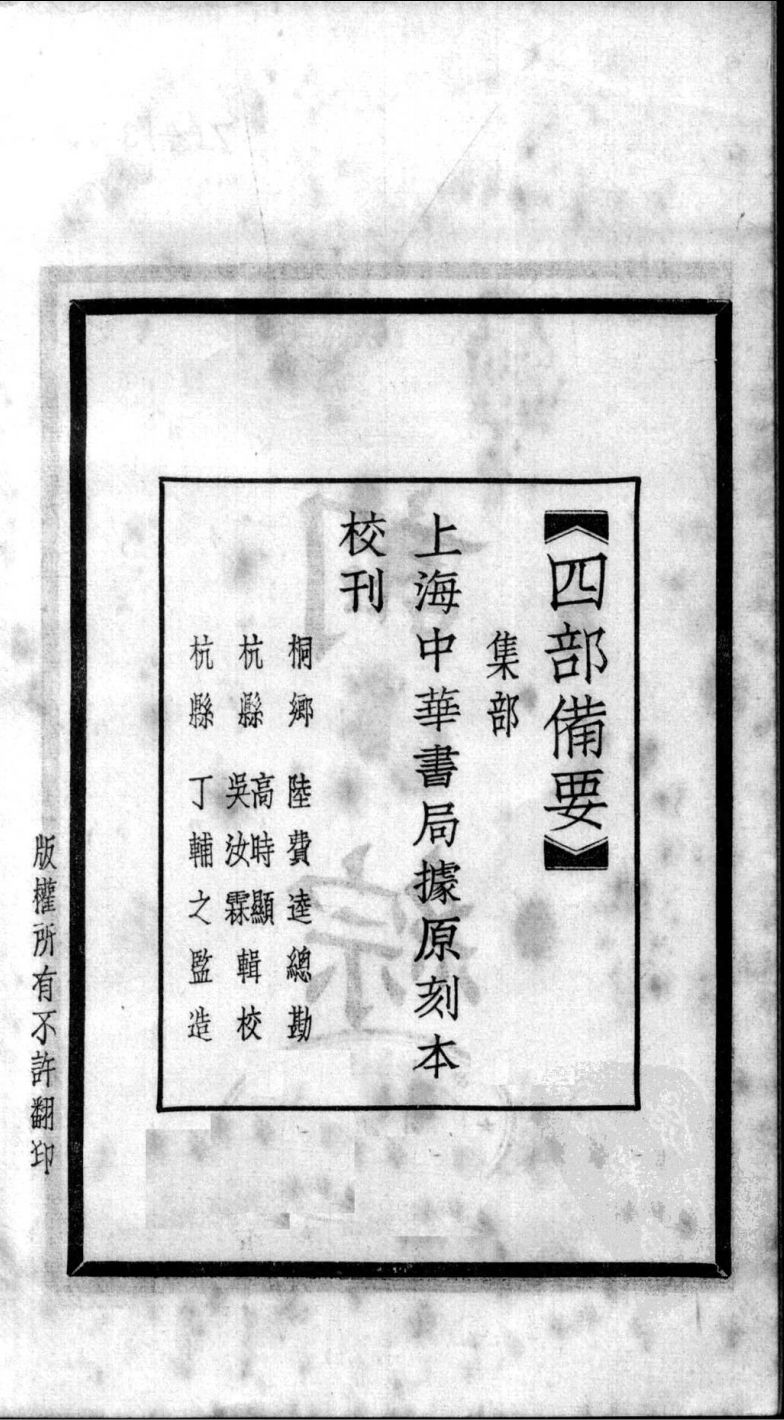 【四部備要】
集部
上海中華書局據原刻本
校刊
桐鄉 陸費逵總勘
杭縣 高時顯 吳汝霖 輯校
杭縣 丁輔之監造
版權所有不許翻印